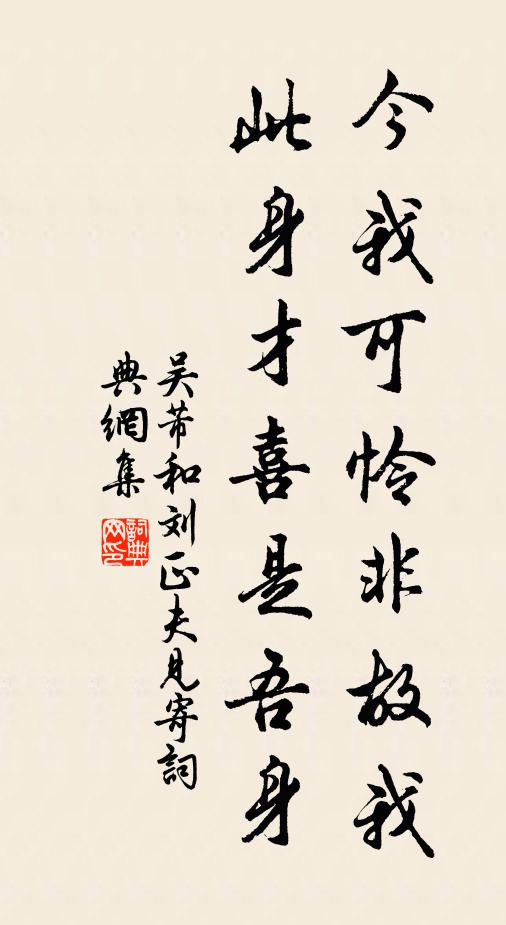 今我可怜非故我
此身才喜是吾身
吴芾和刘正夫见寄詞
典網集
詞典
网印